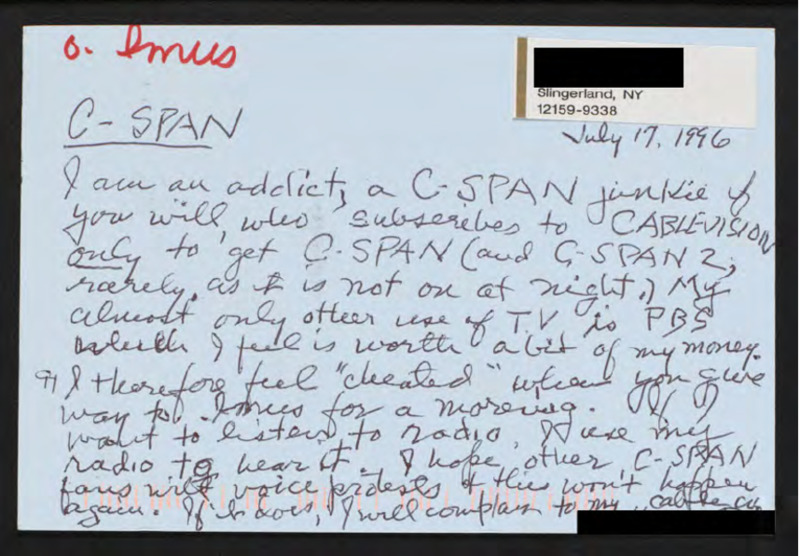 o. Imus
Slingerland, NY
12159-9338
C-SPAN
July 17, 1996
I am an addict, a C-SPAN junkie if
you will, who subscribes to CABLEVISION
only to get C-SPAN (and C-SPAN 2,
rarely, as it is not on at night.) My
almost only other use of TV is PBS
which I feel is worth a bit of my money.
I therefore feel "cheated" when you give
way to Imus for a morning. If I
want to listen to radio, I use my
radio to hear it. I hope other C-SPAN
fans will voice protests & this won't happen
again. If it does, I will complain to my cable co.